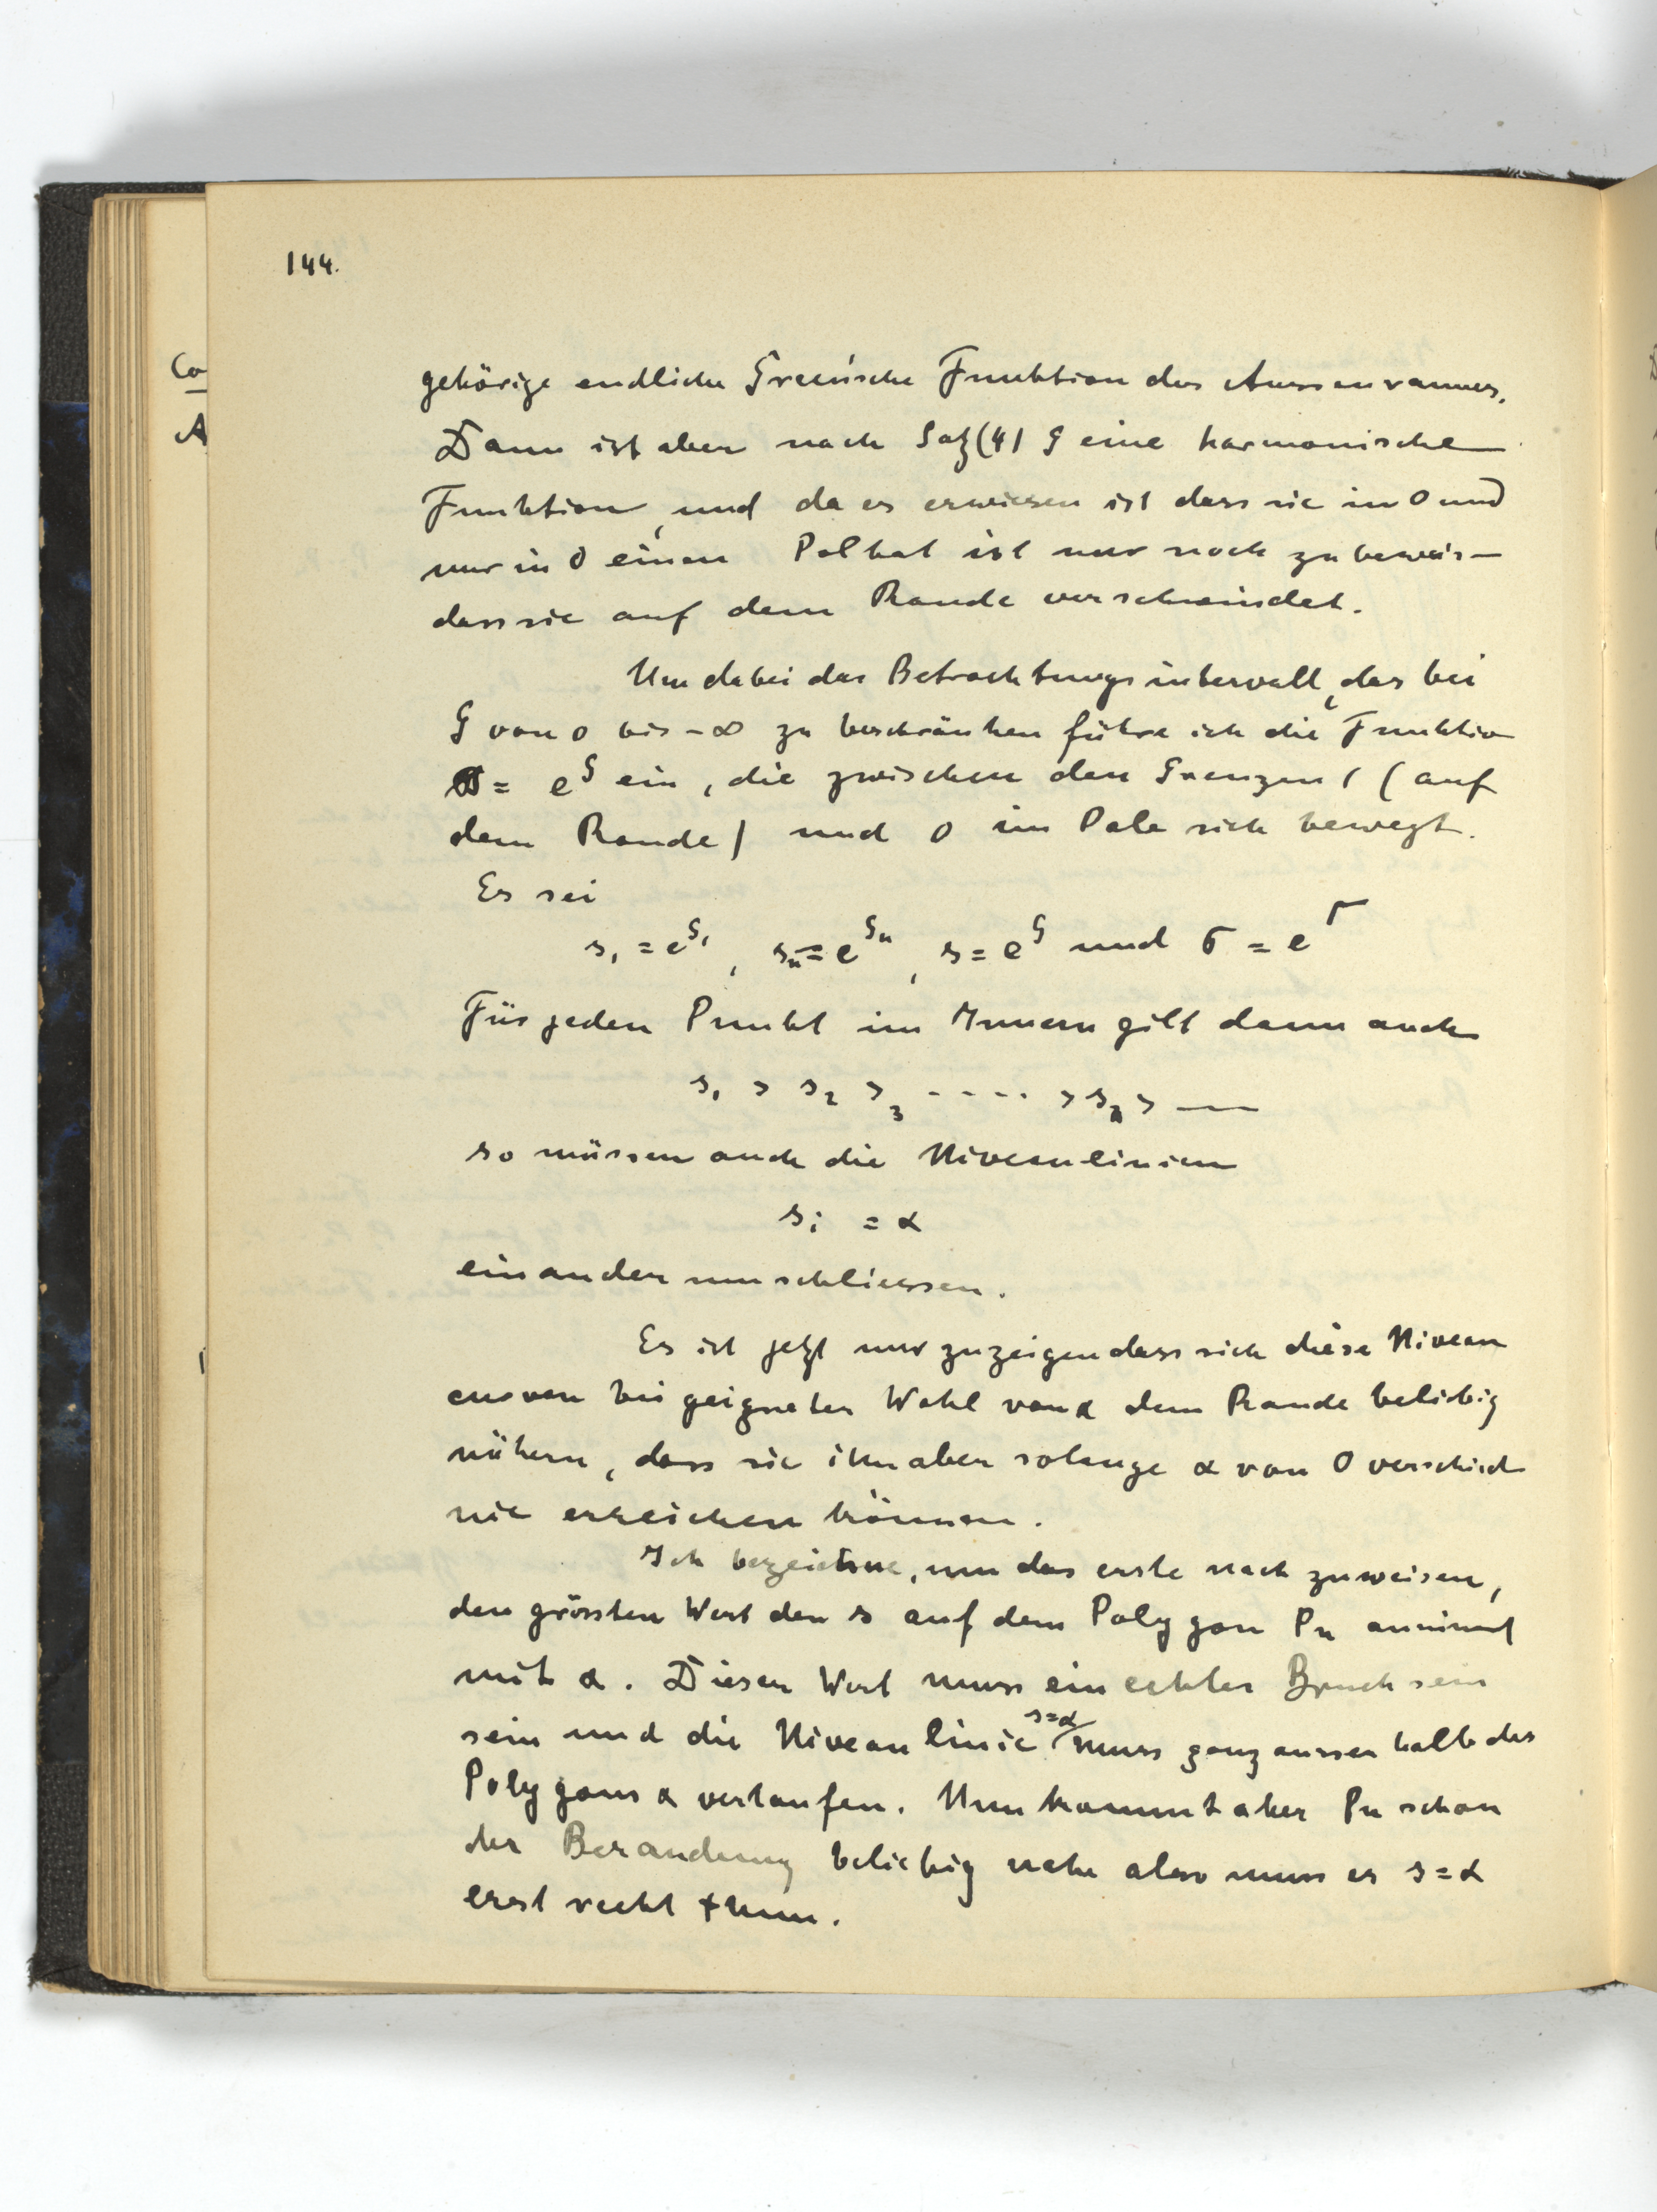 144.
Co
A
gehörige endliche Green'sche Funktion des Aussenraumes.
Dann ist aber nach Satz (4) G eine harmonische
Funktion, und da es erwiesen ist dass sie in O und
nur in O einen Pol hat ist nur noch zu beweis-
dass sie auf dem Rande verschwindet.
Um dabei das Betrachtungsintervall, das bei
G von 0 bis -∞ zu beschränken führe ich die Funktion
= e^G ein, die zwischen den Grenzen 1 (auf
dem Rande) und 0 im Pole sich bewegt.
Es sei
s₁ = e^G₁, sₙ = e^Gₙ, s = e^G und σ = e^Γ
Für jeden Punkt im Innern gilt dann auch
s₁ > s₂ >₃ - - - - > sₙ > —
so müssen auch die Niveaulinien
sᵢ = α
einander umschliessen.
Es ist jetzt nur zu zeigen dass sich diese Niveau
curven bei geigneter Wahl von α dem Rande beliebig
nähern, dass sie ihn aber solange α von 0 verschied
nie erreichen können.
Ich bezeichne, um das erste nachzuweisen,
den grössten Wert den s auf dem Polygon Pn annimmt
mit α. Dieser Wert muss ein echter Bruch sein
sein und die Niveaulinie s=α muss ganz ausserhalb des
Polygons α verlaufen. Nun kommt aber Pn schon
der Berandung beliebig nahe also muss es s = α
erst recht thun.